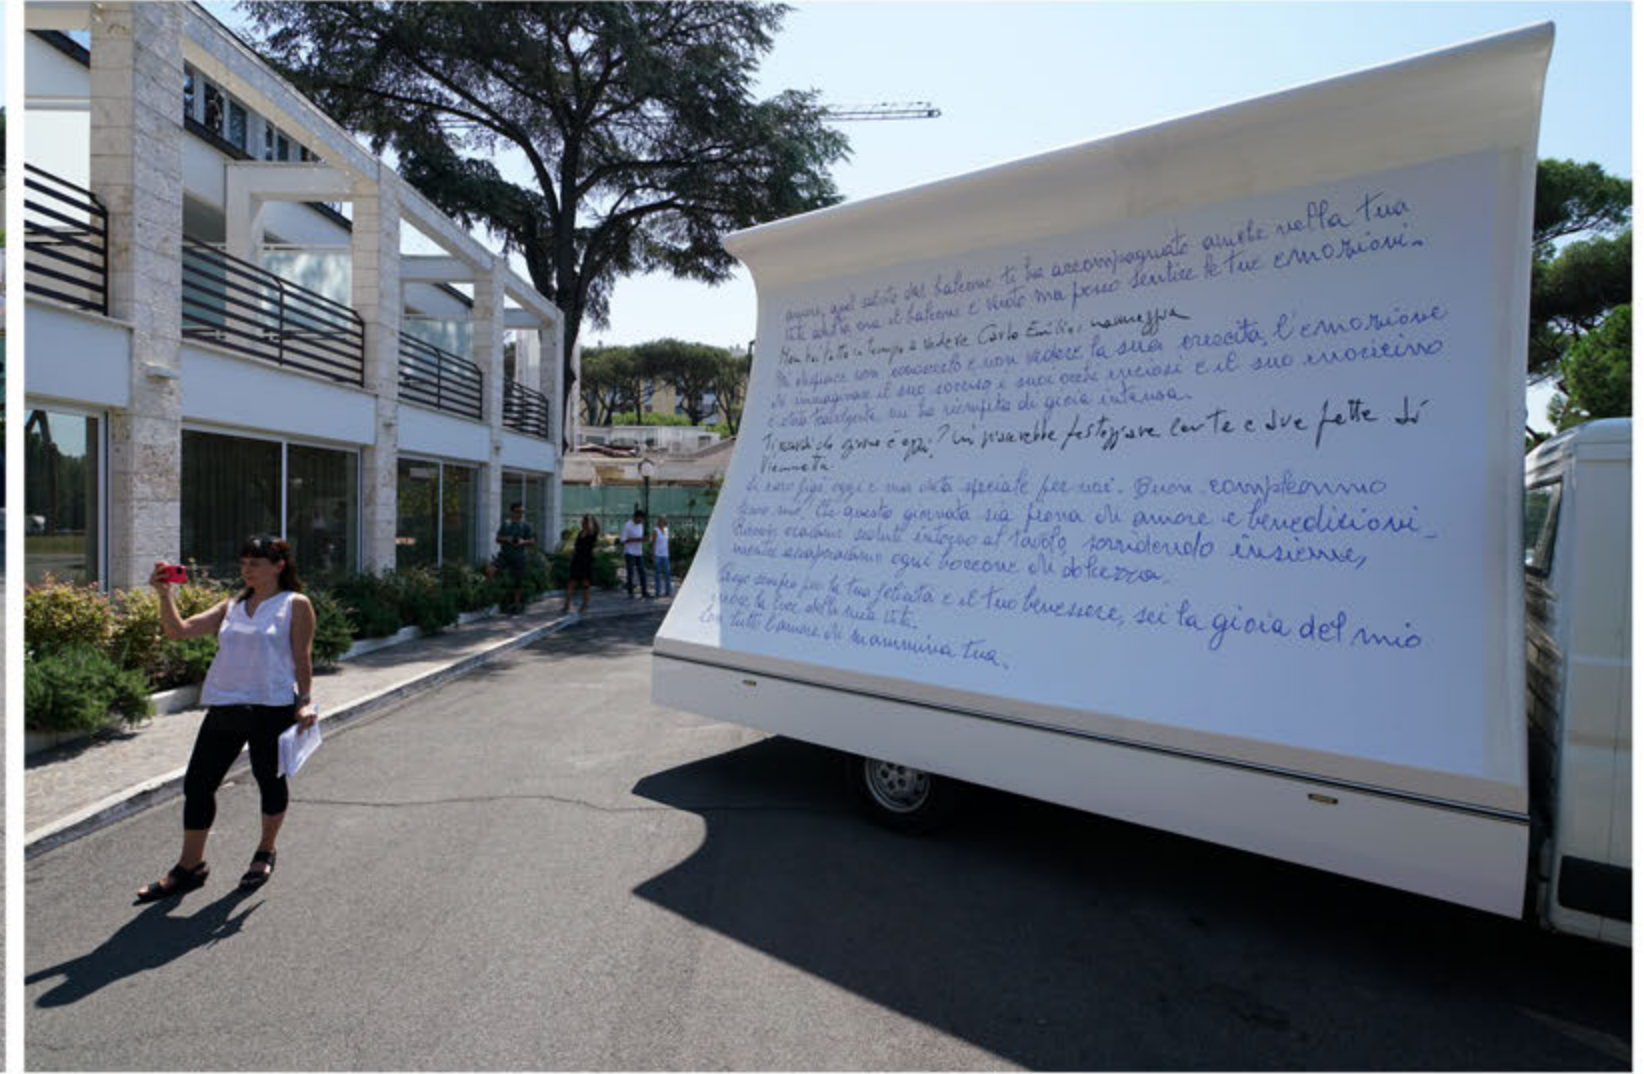 amore, quel saluto dal balcone ti ha accompagnato anche nella tua
vita adulta ora il balcone è vuoto ma posso sentire le tue emozioni.
Non hai fatto in tempo a vedere Carlo Emilio,
Mi dispiace non conoscerlo e non vedere la sua crescita, l'emozione
di immaginare il suo sorriso i suoi occhi curiosi e il suo nasino
è stata travolgente mi ha riempita di gioia intensa.
Ti ricordi che giorno è oggi? mi piacerebbe festeggiare con te e due fette di
Viennetta
oggi è una data speciale per noi. Buon compleanno
Che questa giornata sia piena di amore e benedizioni
seduti intorno al tavolo sorridendo insieme,
mentre assaporavamo ogni boccone di dolcezza.
Prego sempre per la tua felicità e il tuo benessere, sei la gioia del mio
cuore la luce della mia vita.
Con tutto l'amore di mammina tua.